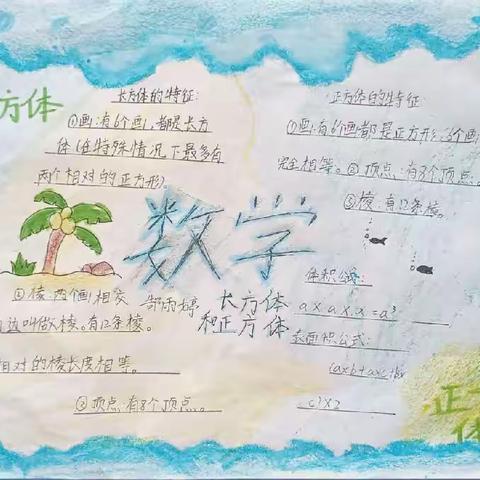 方体
长方体的特征:
①面:有6个面,都是长方
体(在特殊情况下最多有
两个相对的正方形)。
正方体的特征:
①面:有6个面都是正方形,6个面
完全相等。②顶点:有8个顶点。
③棱:有12条棱。
数学
②棱:两个面相交
边叫做棱。有12条棱。
相对的棱长度相等。
③顶点:有8个顶点。
长方体
和正方体
体积公式:
a×a×a=a³
表面积公式:
(a×b+a×c+b×
c)×2
正
体